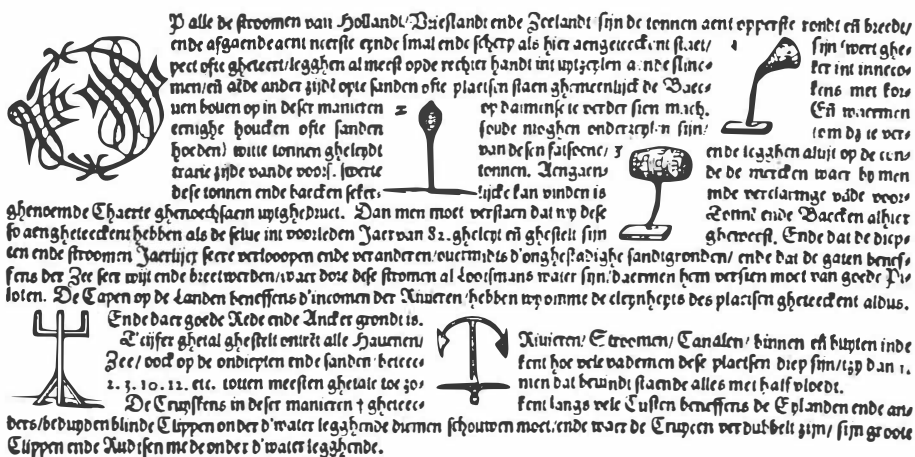 OP alle de stroomen van Hollandt/ Vrieslandt ende Zeelandt sijn de tonnen aent opperste rondt eñ breedt/
ende afgaende aent neerste eynde smal ende scherp als hier aengeteeckent staet/ sijn swert ghe-
pect ofte gheteert/ legghen al meest op de rechter handt int uytzeylen ende slinc- ker int inneco-
men/ eñ alde ander zijdt opte sanden ofte plaetsen staen ghemeenlijck de Baec- kens met kor-
ven boven op in deser manieren 2 op datmense te verder sien mach. Eñ waermen
eenighe houcken ofte sanden soude moghen onderzeylen sijn/ tem dz te ver-
hoeden) witte tonnen gheleydt van desen fatsoene/ 3 ende legghen altijt op de con-
trarie zijde vande voors. swerte tonnen. Aengaen- de de mercken waer by men
dese tonnen ende baecken seker- lijcke kan vinden is mde verclaringe väde voor-
ghenoemde Chaerte ghenoechsaem uytghedruct. Dan men moet verstaen dat wy dese Tonnē ende Baecken alhier
so aengheteeckent hebben als de selve int voorleden Jaer van 82. gheleyt eñ ghestelt sijn gheweest. Ende dat de diep-
ten ende stroomen Jaerlijcx seere verlooopen ende veranderen/ overmidts d'onghestadighe sandtgronden/ ende dat de gaten benef-
fens der Zee seer wijt ende breet werden/ waer dore dese stromen al Lootsmans water sijn/ daermen hem versien moet van goede Pi-
loten. De Capen op de Landen beneffens d'incomen der Rivieren hebben wy omme de cleynheyts des plaetsen gheteeckent aldus.
Ende daer goede Rede ende Ancker grondt is.
T'cijfer ghetal ghestelt ontrēt alle Havenen/ Rivieren/ Stroomen/ Canalen/ binnen eñ buyten inde
Zee/ oock op de ondiepten ende sanden beteec- kent hoe vele vademen dese plaetsen diep sijn/ tzy dan 1.
2. 3. 10. 12. etc. totten meesten ghetale toe zo- men dat bevindt staende alles met half vloedt.
De Cruyskens in deser manieren † gheteec- kent langs vele Custen beneffens de Eylanden ende an-
ders/ beduyden blinde Clippen onder d'water legghende diemen schouwen moet/ ende waer de Cruycen verdubbelt zijn/ sijn groote
Clippen ende Rudtsen mede onder d'water legghende.